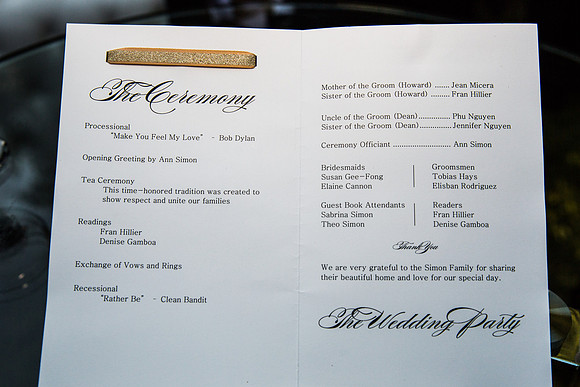 The Ceremony
Processional
"Make You Feel My Love" - Bob Dylan
Opening Greeting by Ann Simon
Tea Ceremony
This time-honored tradition was created to
show respect and unite our families
Readings
Fran Hillier
Denise Gamboa
Exchange of Vows and Rings
Recessional
"Rather Be" - Clean Bandit
Mother of the Groom (Howard) ....... Jean Micera
Sister of the Groom (Howard) ......... Fran Hillier
Uncle of the Groom (Dean)............... Phu Nguyen
Sister of the Groom (Dean)............... Jennifer Nguyen
Ceremony Officiant ........................... Ann Simon
Bridesmaids
Susan Gee-Fong
Elaine Cannon
Groomsmen
Tobias Hays
Elisban Rodriguez
Guest Book Attendants
Sabrina Simon
Theo Simon
Readers
Fran Hillier
Denise Gamboa
Thank You
We are very grateful to the Simon Family for sharing
their beautiful home and love for our special day.
The Wedding Party